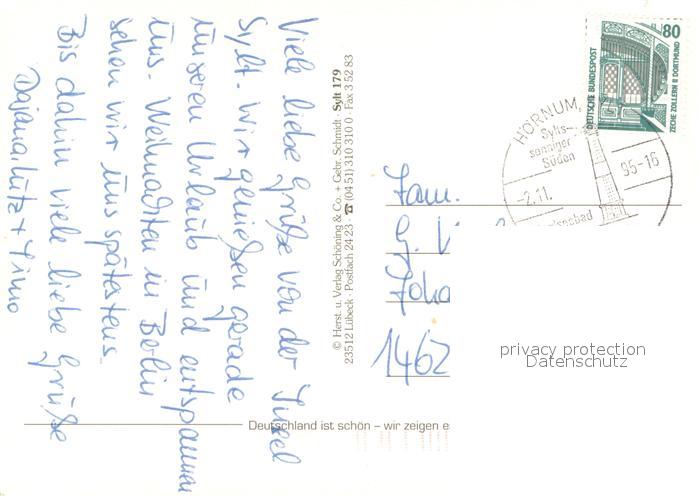 Viele liebe Grüße von der Insel
Sylt. Wir genießen gerade
unseren Urlaub und entspannen
uns. Weihnachten in Berlin
sehen wir uns spätestens.
Bis dahin viele liebe Grüße
Dajana, Lutz + Timo
© Herst. u. Verlag Schöning & Co. + Gebr. Schmidt · Sylt 179
23512 Lübeck · Postfach 24 23 · ☎ (04 51) 310 310 0 · Fax 3 52 83
80
DEUTSCHE BUNDESPOST
ZECHE ZOLLERN II DORTMUND
HÖRNUM,
Sylts
sonniger
Süden
-2.11.
95-16
Fam.
G.
1462
privacy protection
Datenschutz
Deutschland ist schön – wir zeigen e